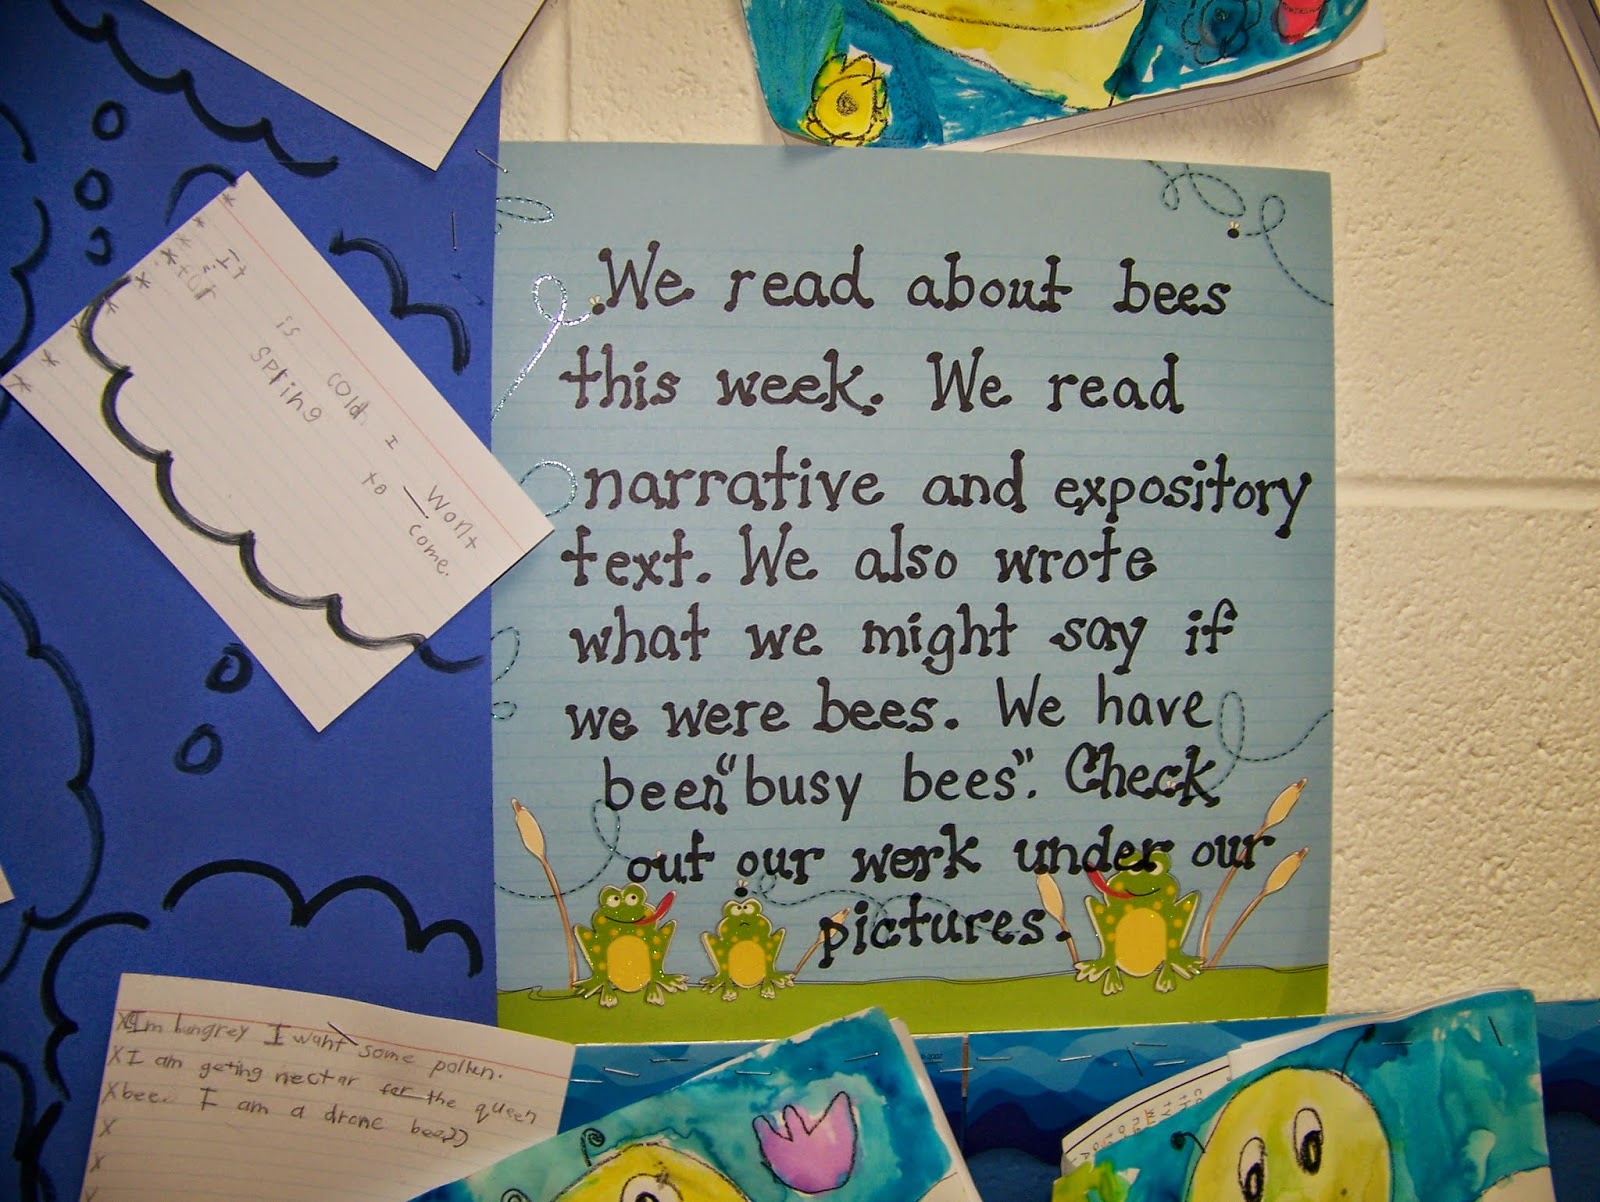 We read about bees
this week. We read
narrative and expository
text. We also wrote
what we might say if
we were bees. We have
been "busy bees". Check
out our work under our
pictures.
It is cold. I wont
for spring to come.
I'm hungrey I want some pollen.
I am geting nectar for the queen
bee. I am a drone bee